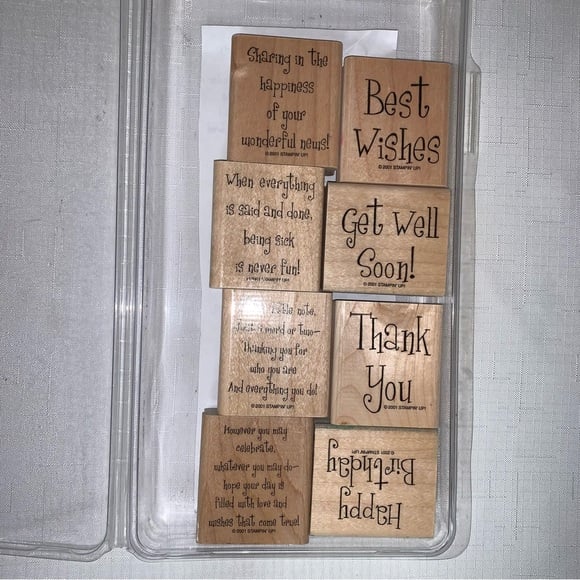 Sharing in the
happiness
of your
wonderful news!
©2001 STAMPIN' UP!
Best
Wishes
©2001 STAMPIN' UP!
When everything
is said and done,
being sick
is never fun!
STAMPIN' UP!
Get Well
Soon!
©2001 STAMPIN' UP!
note,
Just a word or two—
Thanking you for
who you are
And everything you do!
©2001 STAMPIN' UP!
Thank
You
©2001 STAMPIN' UP!
However you may
celebrate,
whatever you may do—
hope your day is
filled with love and
wishes that come true!
©2001 STAMPIN' UP!
Happy
Birthday
©2001 STAMPIN' UP!